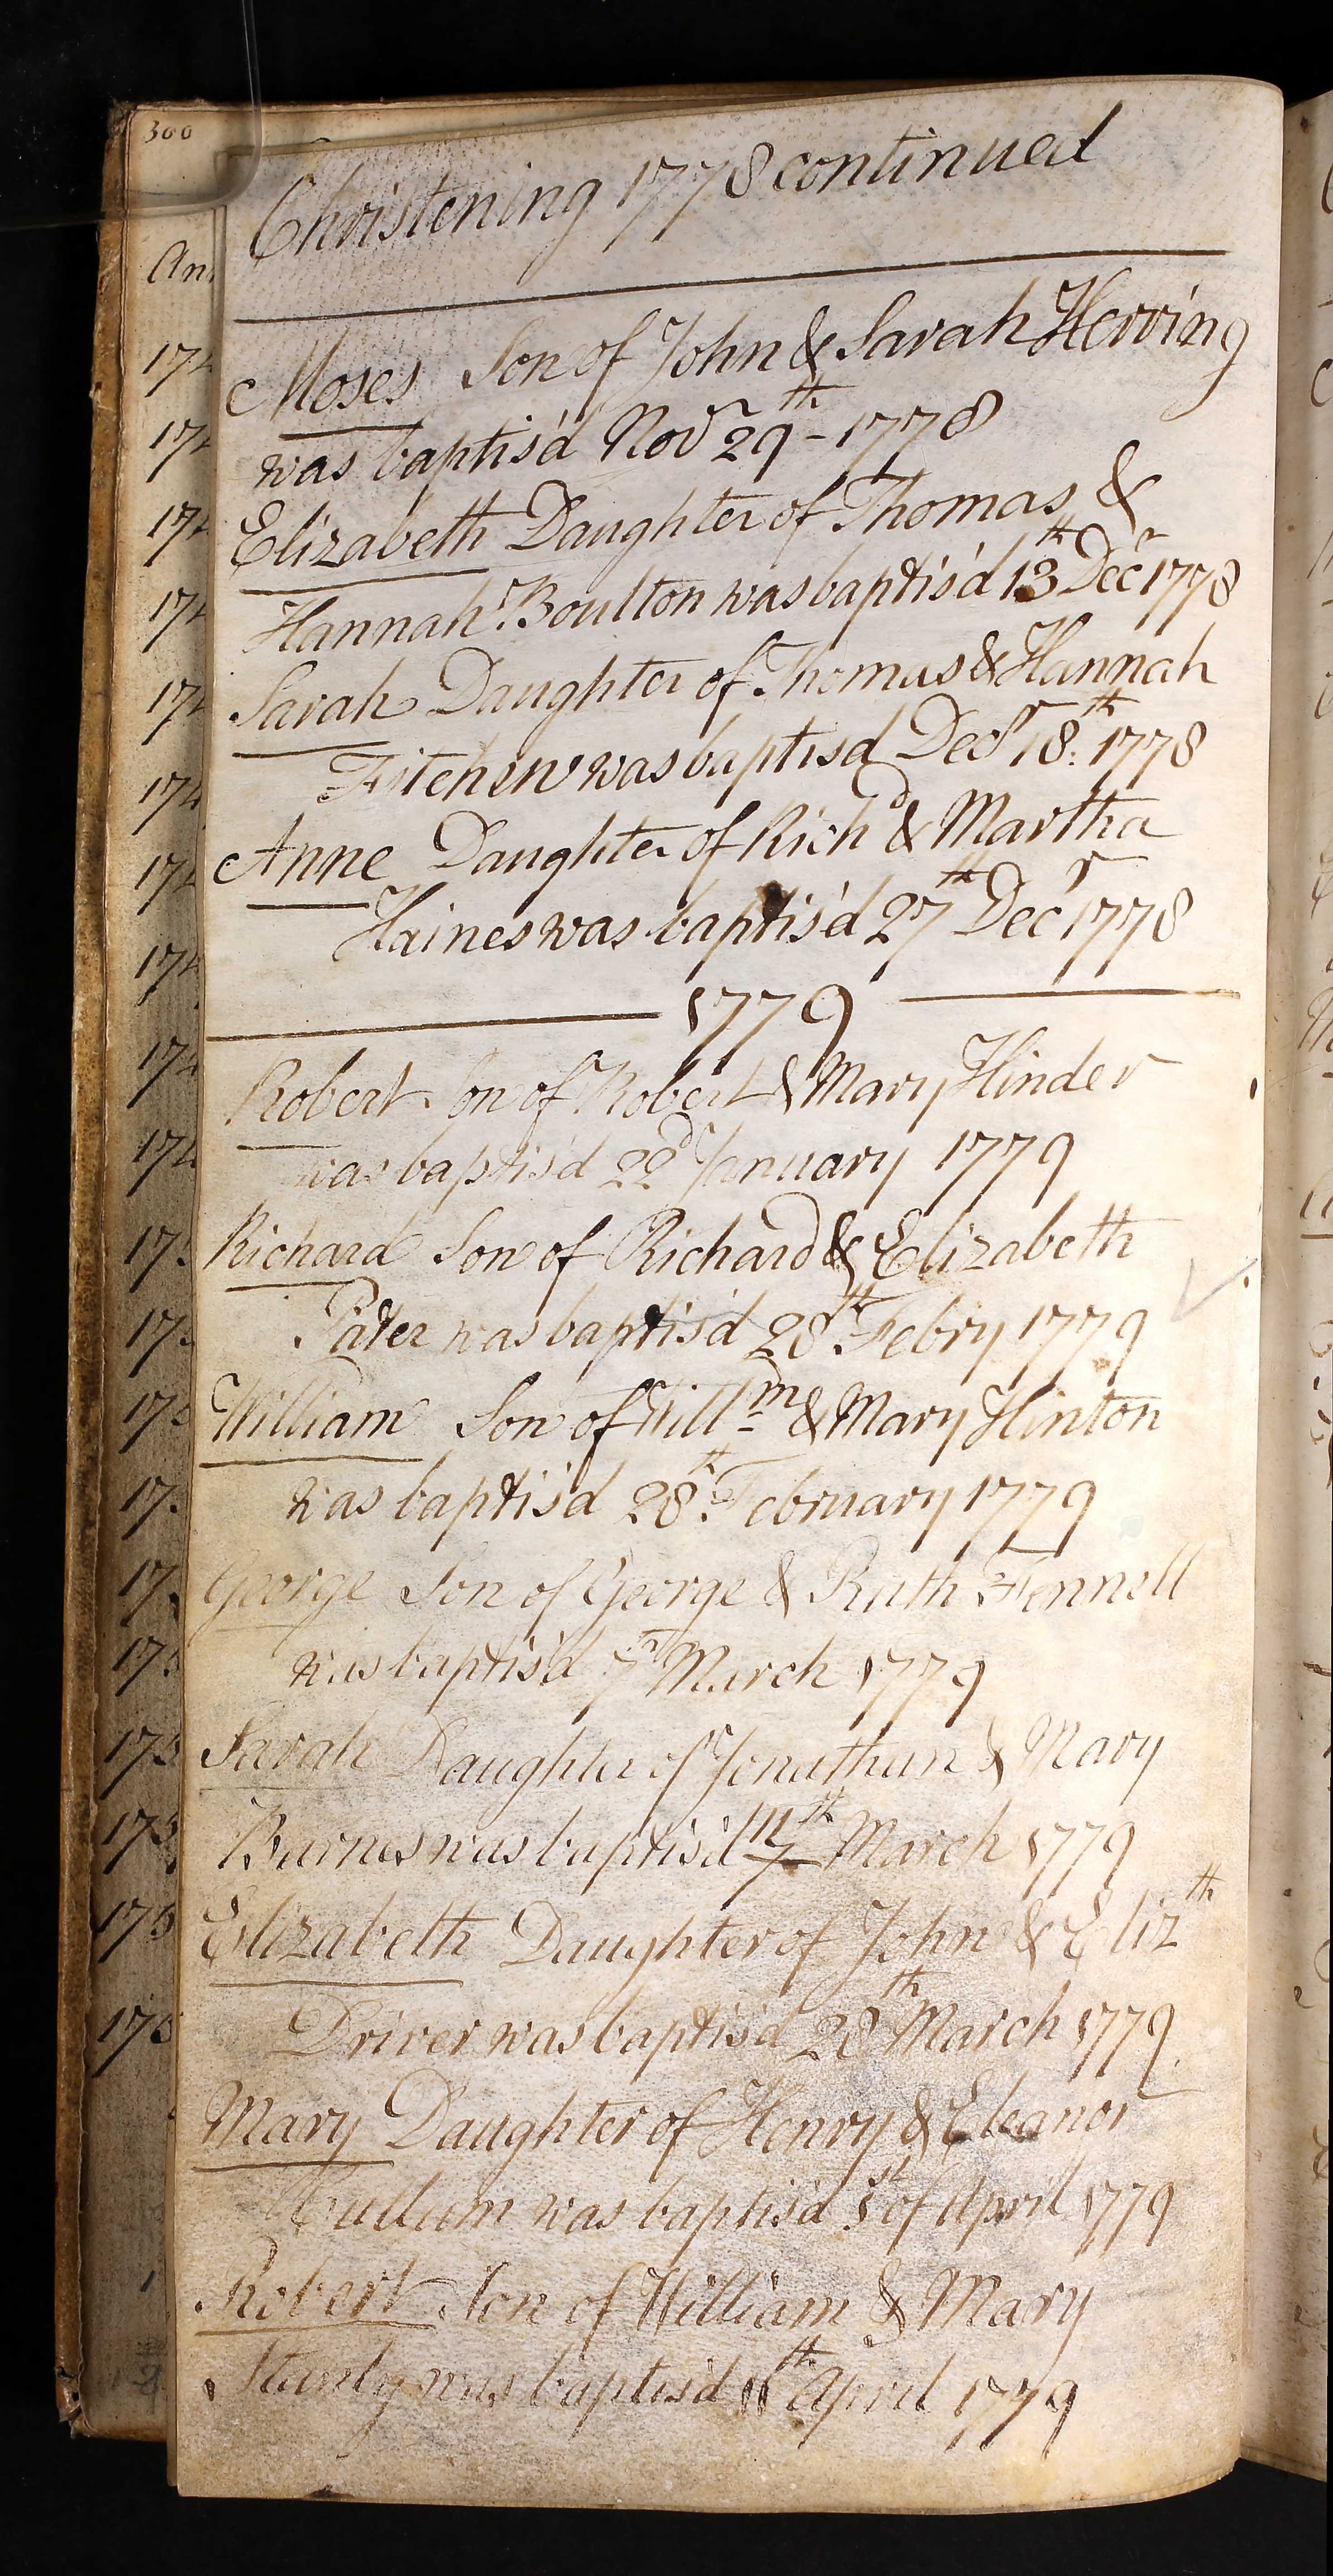 300
Christening 1778 continued
An
Moses Son of John & Sarah Herring
was baptis'd Novr 29th - 1778
Elizabeth Daughter of Thomas &
Hannah Boulton was baptis'd 13th Decr 1778
Sarah Daughter of Thomas & Hannah
Fitchew was baptisd Decr 18th 1778
Anne Daughter of Richd & Martha
Haines was baptis'd 27th Decr 1778
1779
Robert Son of Robert & Mary Hinder
was baptis'd 22d January 1779
Richard Son of Richard & Elizabeth
Pater was baptis'd 28th Febry 1779
William Son of Willm & Mary Hinton
was baptis'd 28th February 1779
George Son of George & Ruth Fennell
was baptis'd 7th March 1779
Sarah Daughter of Jonathan & Mary
Barnes was baptis'd th March 1779
Elizabeth Daughter of John & Elizth
Driver was baptis'd 28th March 1779
Mary Daughter of Henry & Eleanor
was baptis'd 1st of April 1779
Robert Son of William & Mary
was baptisd 11th April 1779